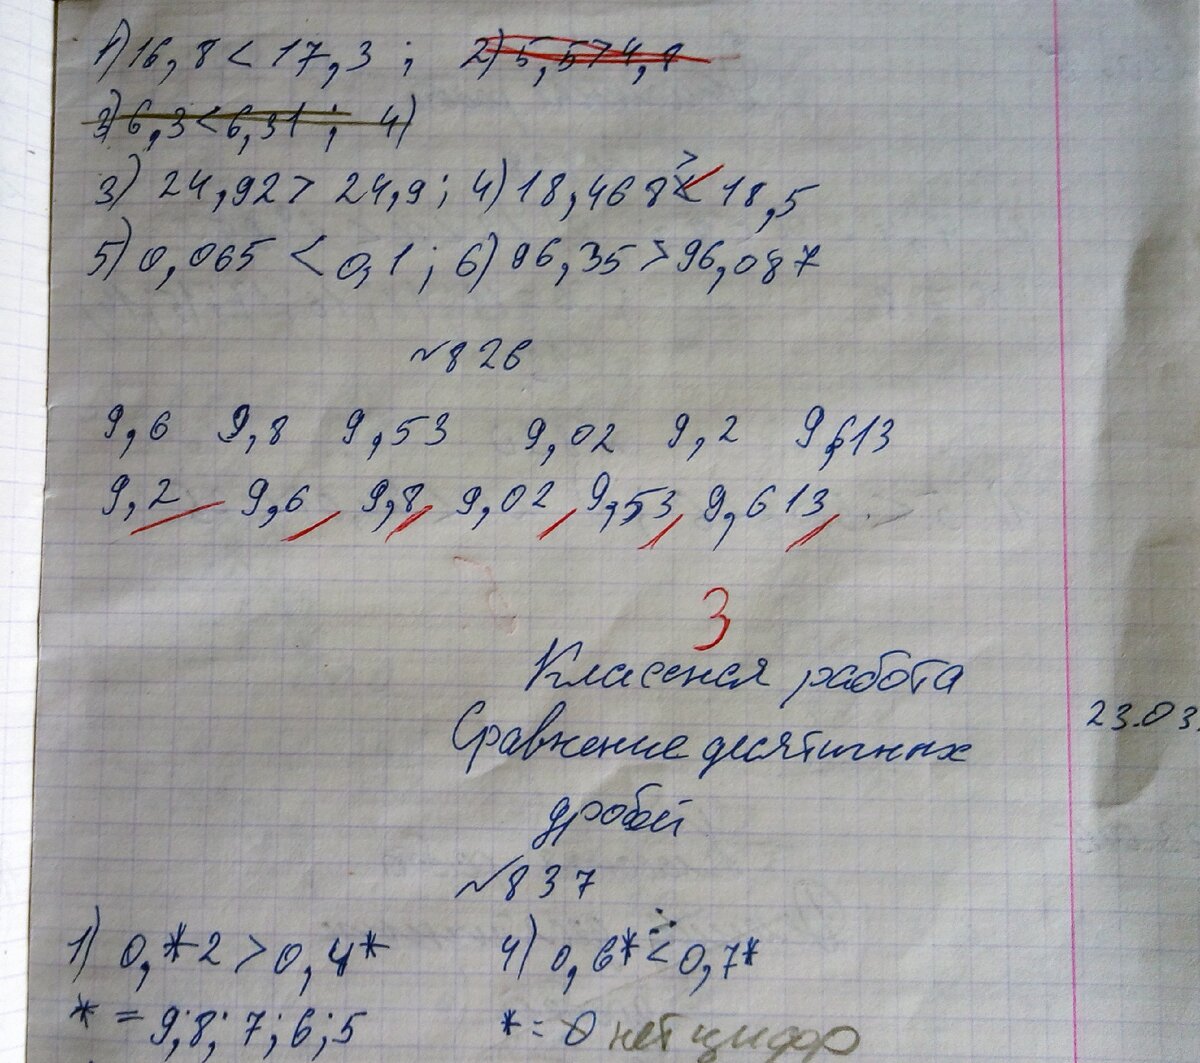 1) 16,8 < 17,3 ; 2) 5,5 > 4,8
3) 6,3 < 6,31 ; 4)
3) 24,92 > 24,9 ; 4) 18,468 < 18,5
5) 0,065 < 0,1 ; 6) 96,35 > 96,087
№826
9,6 9,8 9,53 9,02 9,2 9,613
9,2 9,6 9,8 9,02 9,53 9,613
3
Классная работа
23.03.
Сравнение десятичных
дробей
№837
1) 0,*2 > 0,4* 4) 0,6* < 0,7*
* = 9; 8; 7; 6; 5 * = 0 нет цифр